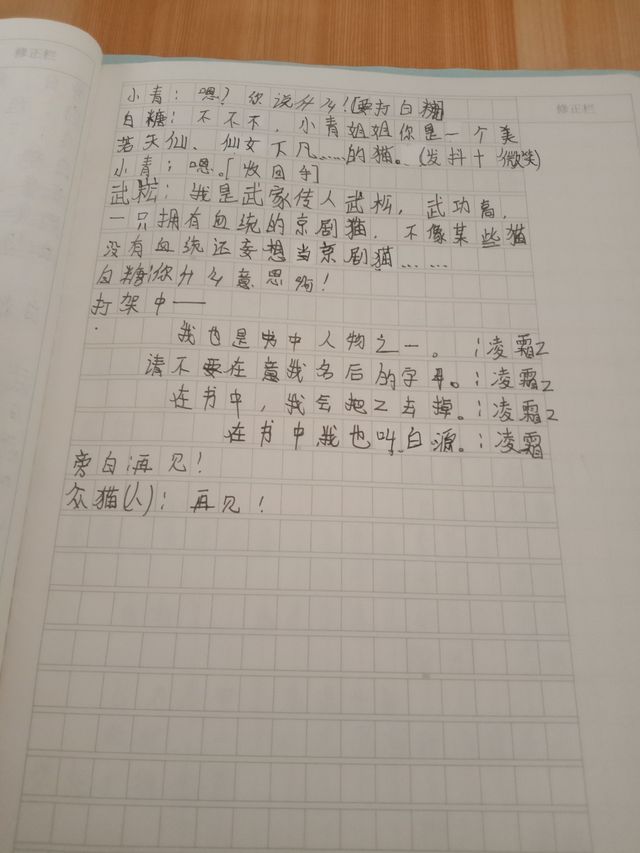 修正栏
修正栏
小青：嗯？你说什么！[要打白糖]
白糖：不不不，小青姐姐你是一个美
若天仙、仙女下凡……的猫。(发抖+微笑)
小青：嗯。[收回手]
武松：我是武家传人武松，武功高，
一只拥有血统的京剧猫，不像某些猫
没有血统还妄想当京剧猫……
白糖：你什么意思啊！
打架中——
我也是书中人物之一。：凌霜Z
请不要在意我名后的字母。：凌霜Z
在书中，我会把Z去掉。：凌霜Z
在书中我也叫白源。：凌霜
旁白：再见！
众猫(人)：再见！